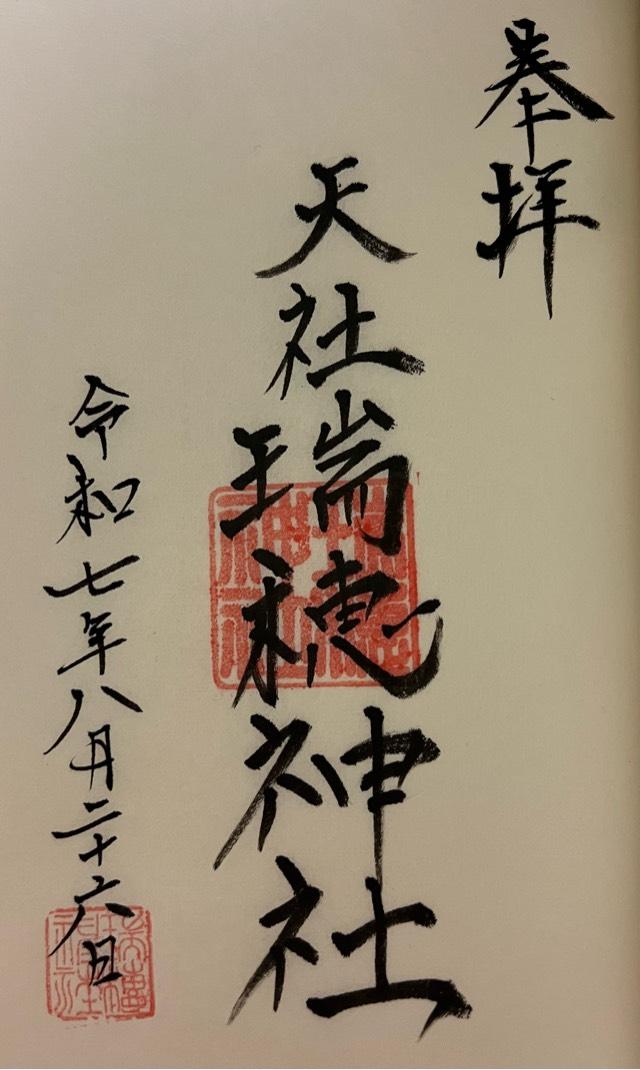 奉拝
天社瑞穂神社
令和七年八月二十六日